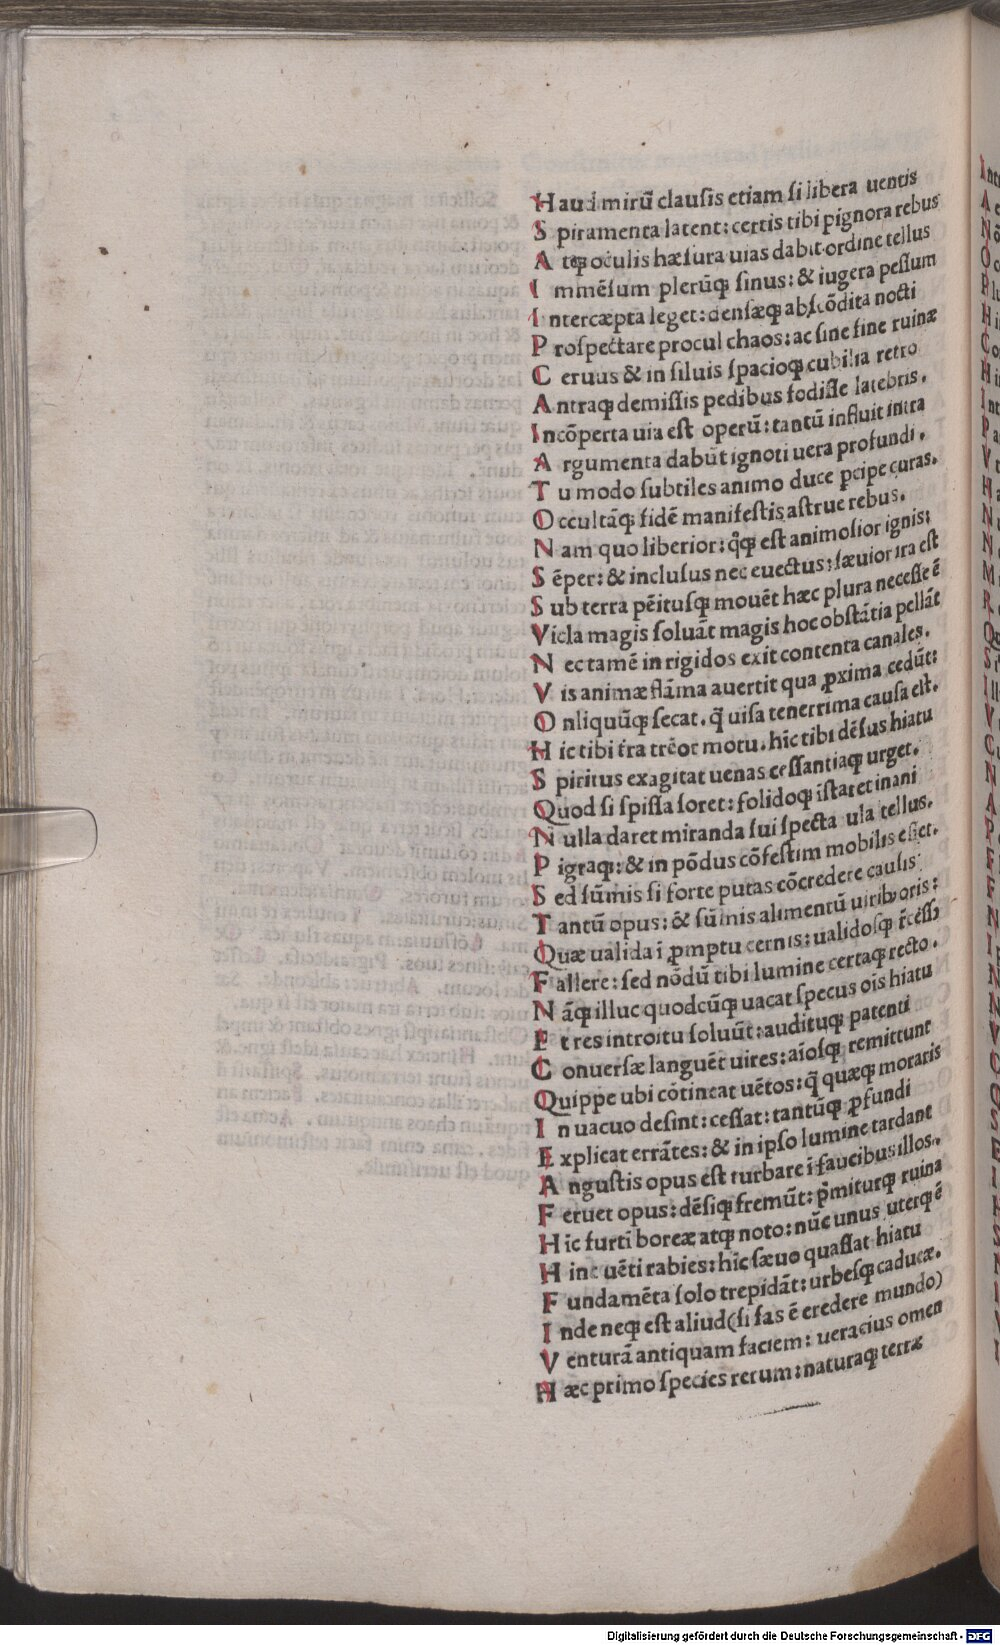 Haud mirū clausis etiam si libera uentis
Spiramenta latent: certis tibi pignora rebus
Atqꝫ oculis hæsura uias dabit ordine tellus
Immēsum plerūqꝫ sinus: & iugera pessum
Intercæpta leget: densæqꝫ abscōdita nocti
Prospectare procul chaos: ac sine fine ruinæ
Ceruus & in siluis spacioqꝫ cubilia retro
Antraqꝫ demissis pedibus fodisse latebris.
Incōperta uia est operū: tantū influit intra
Argumenta dabūt ignoti uera profundi.
Tu modo subtiles animo duce ꝑcipe curas.
Occultāqꝫ fidē manifestis astrue rebus.
Nam quo liberior: q̄qꝫ est animosior ignis:
Sēper: & inclusus nec euectus: sæuior ira est
Sub terra pēitusqꝫ mouēt hæc plura necesse ē
Vicla magis soluāt magis hoc obstātia pellāt
Nec tamē in rigidos exit contenta canales.
Vis animæ flāma auertit qua ꝓxima cedūt:
Onliquūqꝫ secat. q̄ uisa tenerrima causa est.
Hic tibi t̄ra trēor motu. hīc tibi dēsus hiatu
Spiritus exagitat uenas cessantiaqꝫ urget.
Quod si spissa foret: solidoqꝫ īstaret inani
Nulla daret miranda sui specta ula tellus.
Pigraqꝫ: & in pōdus cōfestim mobilis esset.
Sed sūmis si forte putas cōcredere causis
Tantū opus: & sūmis alimentū uiribꝰ oris:
Quæ ualida ī ꝓmptu cernis: ualidosqꝫ r̄cessꝰ
Fallere: sed nōdū tibi lumine certaqꝫ recto.
Nāqꝫ illuc quodcūqꝫ uacat specus ois hiatu
Et res introitu soluūt: audituqꝫ patenti
Conuersæ languēt uires: aīosqꝫ remittunt
Quippe ubi cōtineat uētos: q̄ quæqꝫ moraris
In uacuo desint: cessat: tantūqꝫ ꝓfundi
Explicat errātes: & in ipso lumine tardant
Angustis opus est turbare ī faucibus illos.
Feruet opus: dēsiqꝫ fremūt: p̄miturqꝫ ruina
Hic furti boreæ atqꝫ noto: nūc unus uterqꝫ ē
Hinc uēti rabies: hīc sæuo quassat hiatu
Fundamēta solo trepidāt: urbesqꝫ caducæ.
Inde neqꝫ est aliud (si fas ē credere mundo)
Venturā antiquam faciem: ueracius omen
Hæc primo species rerum: naturaqꝫ terræ
Digitalisierung gefördert durch die Deutsche Forschungsgemeinschaft - DFG